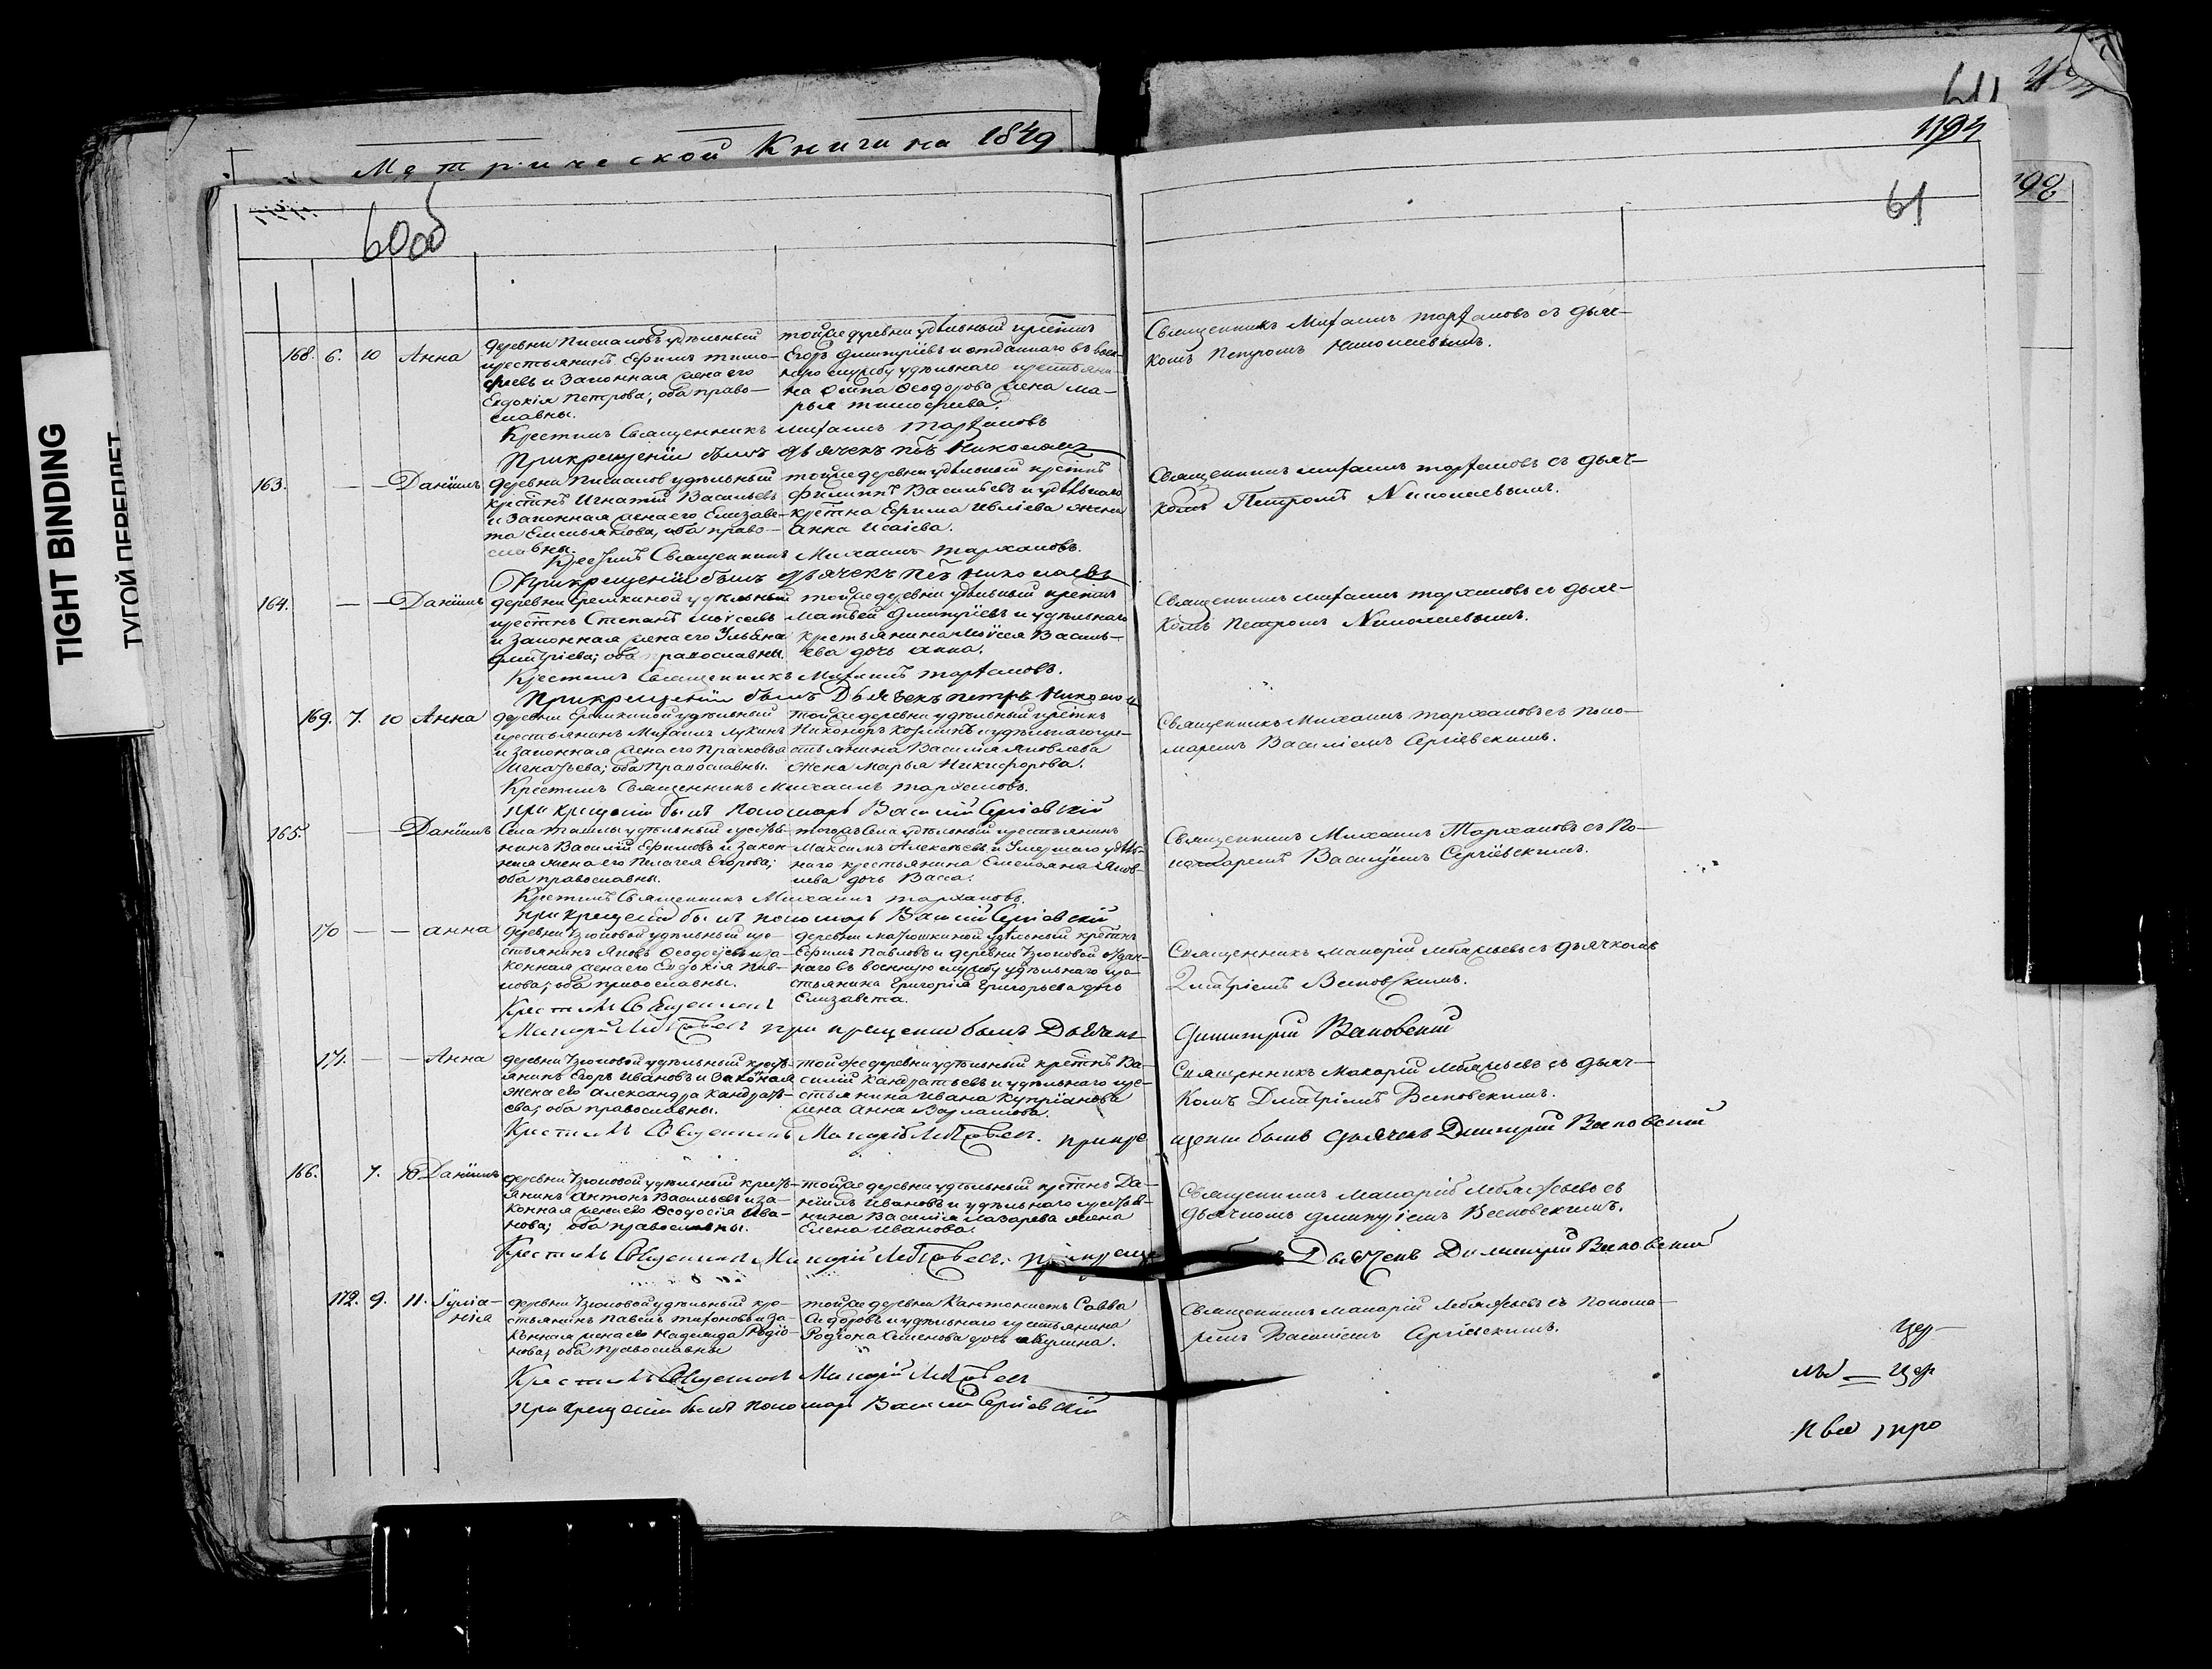 TIGHT BINDING
ТУГОЙ ПЕРЕПЛЕТ
Метрической Книги на 1849
1194
198
60об
61
168. 6. 10 Анна
деревни удѣльный
крестьянинъ Ефимъ Тимо-
феевъ и Законная жена его
Евдокія Петрова; оба право-
славны.
тойже деревни удѣльный крестнъ
Егоръ Дмитріевъ и отданнаго въ воен-
ную службу удѣльнаго крестьяни-
на Ѳеодорова жена Ма-
рья Тимофеева.
Священникъ Михаилъ Тархановъ съ дьяч-
комъ Петромъ Николаевымъ.
Крестилъ Священникъ Михаилъ Тархановъ
При крещеніи былъ дьячекъ Николаевъ
163. — — Даніилъ
деревни удѣльный
крестнъ Игнатій Васильевъ
и Законная жена его Елизаве-
та Емельянова, оба право-
славны.
тойже деревни удѣльный крестнъ
Филиппъ Васильевъ и удѣльнаго
крестна Ефима жена
Анна Исаіева.
Священникъ Михаилъ Тархановъ съ дьяч-
комъ Петромъ Николаевымъ.
Крестилъ Священникъ Михаилъ Тархановъ.
При крещеніи былъ дьячекъ Николаевъ
164. — — Даніилъ
деревни Еремкиной удѣльный
крестнъ Степанъ Моѵсеевъ
и Законная жена его Ульяна
Дмитріева; оба православны.
тойже деревни удѣльный крестнъ
Матвей Дмитріевъ и удѣльнаго
крестьянина Моѵсея Василь-
ева дочь Анна.
Священникъ Михаилъ Тархановъ съ дьяч-
комъ Петромъ Николаевымъ.
Крестилъ Священникъ Михаилъ Тархановъ.
При крещеніи былъ Дьячекъ Петръ
169. 7. 10 Анна
деревни Еремкиной удѣльный
крестьянинъ Михаилъ Лукинъ
и Законная жена его Прасковья
Игнатьева; оба православны.
тойже деревни удѣльный крестнъ
Никаноръ Козминъ и удѣльнаго кре-
стьянина Василія Яковлева
жена Марья Никифорова.
Священникъ Михаилъ Тархановъ съ поно-
маремъ Василіемъ Сергіевскимъ.
Крестилъ Священникъ Михаилъ Тархановъ.
при крещеніи былъ пономарь Василій Сергіевскій
165. — — Даніилъ
Села Ташлы удѣльный крестья-
нинъ Василій Ефимовъ и Закон-
ная жена его Пелагея Егорова;
оба православны.
тогожъ Села удѣльный крестьянинъ
Максимъ Алексѣевъ и умершаго удѣль-
наго крестьянина Емельяна Яков-
лева дочь Васса.
Священникъ Михаилъ Тархановъ съ По-
номаремъ Василіемъ Сергіевскимъ.
Крестилъ Священникъ Михаилъ Тархановъ.
при крещеніи былъ пономарь Василій Сергіевскій
170 — — Анна
деревни Узюковой удѣльный кре-
стьянинъ Яковъ и за-
конная жена его Евдокія Пав-
лова; оба православны.
деревни Матюшкиной удѣльный крестнъ
Ефимъ Павловъ и деревни Узюковой отдан-
наго въ военную службу удѣльнаго кре-
стьянина Григорія Григорьева дочь
Елизавета.
Священникъ Макарій съ дьячкомъ
Дмитріемъ
Крестилъ Священникъ
Макарій при крещеніи былъ Дьячекъ Димитрій
171. — — Анна
деревни Узюковой удѣльный кресть-
янинъ Егоръ Ивановъ и Законая
жена его Александра Кандрать-
ева; оба православны.
тойже деревни удѣльный крестнъ Ва-
силій Кандратьевъ и удѣльнаго кре-
стьянина Ивана Купріанова
жена Анна Варламова.
Священникъ Макарій съ дьяч-
комъ Дмитріемъ
Крестилъ Священникъ Макарій при кре
щеніи былъ дьячекъ Димитрій
166. 7. 10 Даніилъ
деревни Узюковой удѣльный кресть-
янинъ Антонъ Васильевъ и за-
конная жена его Ѳеодосія Ива-
нова; оба православны.
тойже деревни удѣльный крестнъ Да-
ніилъ Ивановъ и удѣльнаго крестья-
нина Василія Лазарева жена
Елена Иванова.
Священникъ Макарій съ
дьячкомъ Димитріемъ
Крестилъ Священникъ Макарій Дьячекъ Димитрій
172. 9. 11. Іуліа-
нія
деревни Узюковой удѣльный кре-
стьянинъ Павелъ Тихоновъ и за-
конная жена его Надежда Родіо-
нова; оба православны
тойже деревни Кантонистъ Савва
Сидоровъ и удѣльнаго крестьянина
Родіона Семенова дочь Акулина.
Священникъ Макарій съ понома-
ремъ Василіемъ Сергіевскимъ.
Крестилъ Священникъ Макарій
при крещеніи былъ пономарь Василій Сергіевскій